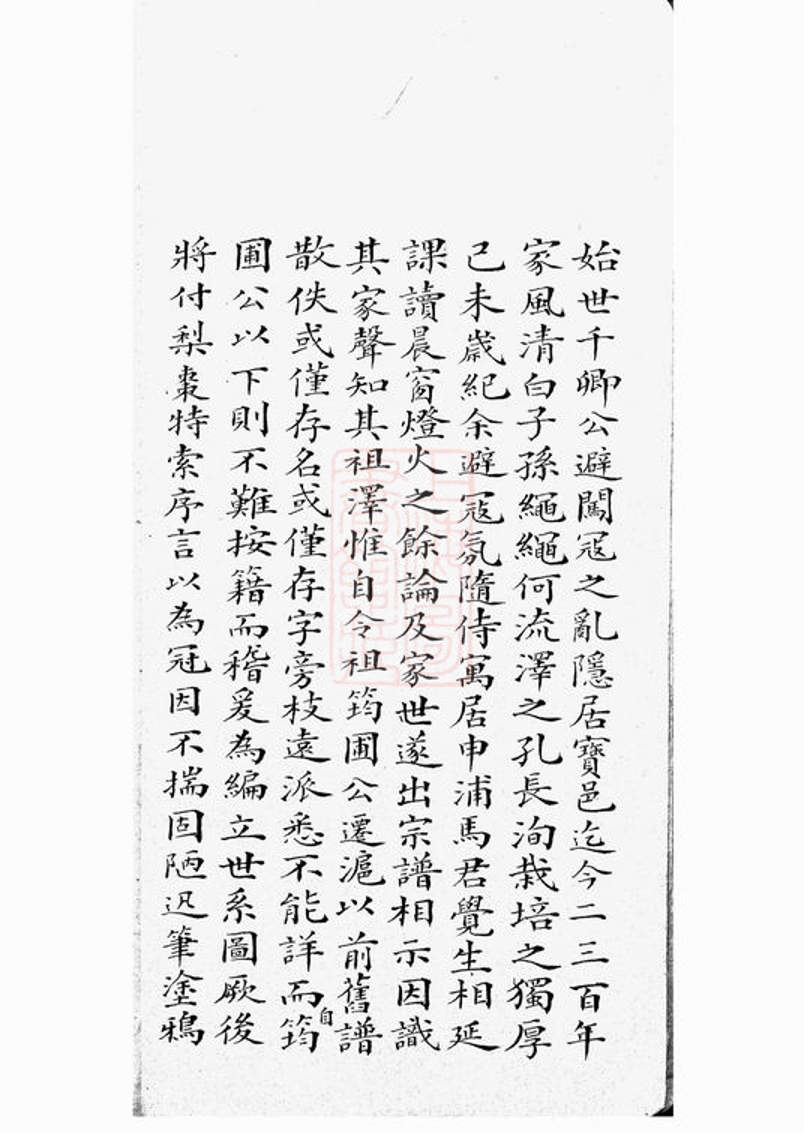 始世千卿公避闖冦之亂隱居寶邑迄今二三百年
家風清白子孫繩繩何流澤之孔長洵栽培之獨厚
己未歲紀余避冦氛隨侍寓居申浦馬君覺生相延
課讀晨窗燈火之餘論及家世遂出宗譜相示因識
其家聲知其祖澤惟自令祖筠圃公遷滬以前舊譜
散佚或僅存名或僅存字旁枝遠派悉不能詳而自筠
圃公以下則不難按籍而稽爰為編立世系圖厥後
將付梨棗特索序言以為冠因不揣固陋迅筆塗鴉